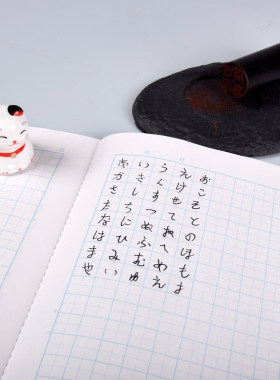 おこそとのほもよ
えけせてねへめえ
うくすつぬふむゆ
いきしちにひみい
あかさたなはまや